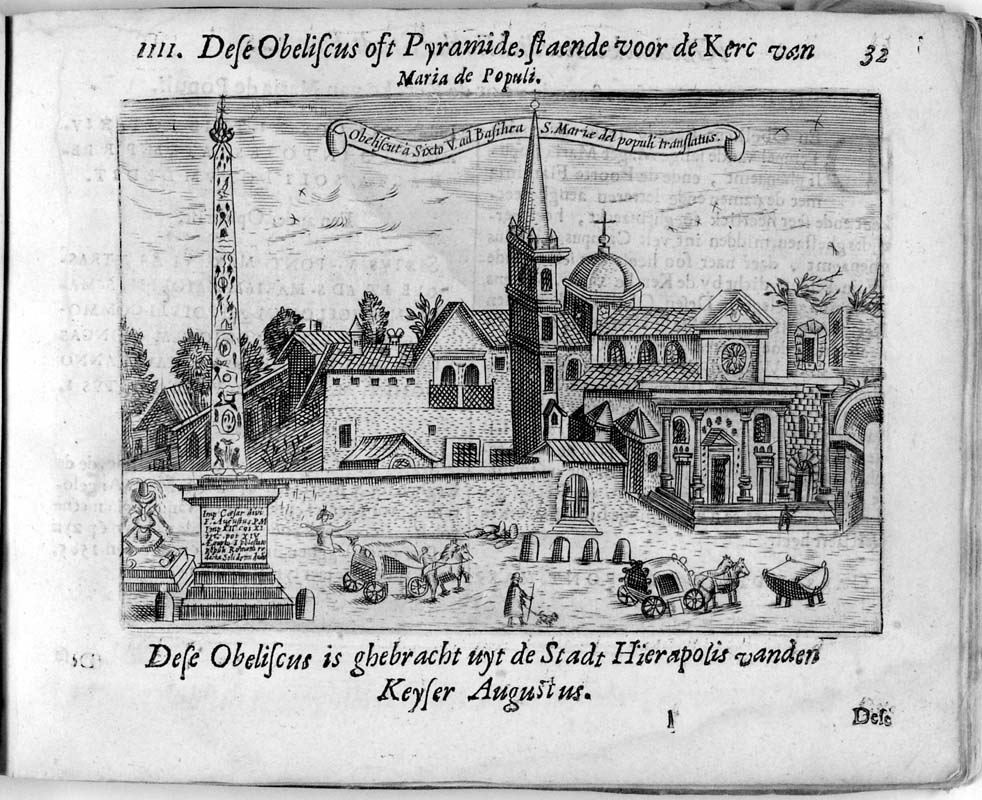 IIII. Dese Obeliscus oft Pyramide, staende voor de Kerc van
32
Maria de Populi.
Obeliscus à Sixto V. ad Basilica S. Mariæ del populi translatus.
Imp Cæsar divi
F. Augustus P.M
Imp XII cos XI
pot XIV
populi Romani re
Dese Obeliscus is ghebracht uyt de Stadt Hierapolis vanden
Keyser Augustus.
Dese